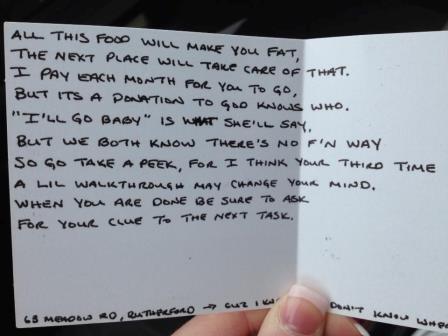 ALL THIS FOOD WILL MAKE YOU FAT,
THE NEXT PLACE WILL TAKE CARE OF THAT.
I PAY EACH MONTH FOR YOU TO GO,
BUT ITS A DONATION TO GOD KNOWS WHO.
"I'LL GO BABY" IS WHAT SHE'LL SAY,
BUT WE BOTH KNOW THERE'S NO F'N WAY
SO GO TAKE A PEEK, FOR I THINK YOUR THIRD TIME
A LIL WALKTHROUGH MAY CHANGE YOUR MIND.
WHEN YOU ARE DONE BE SURE TO ASK
FOR YOUR CLUE TO THE NEXT TASK.
63 MEADOW RD, RUTHERFORD → CUZ I DON'T KNOW